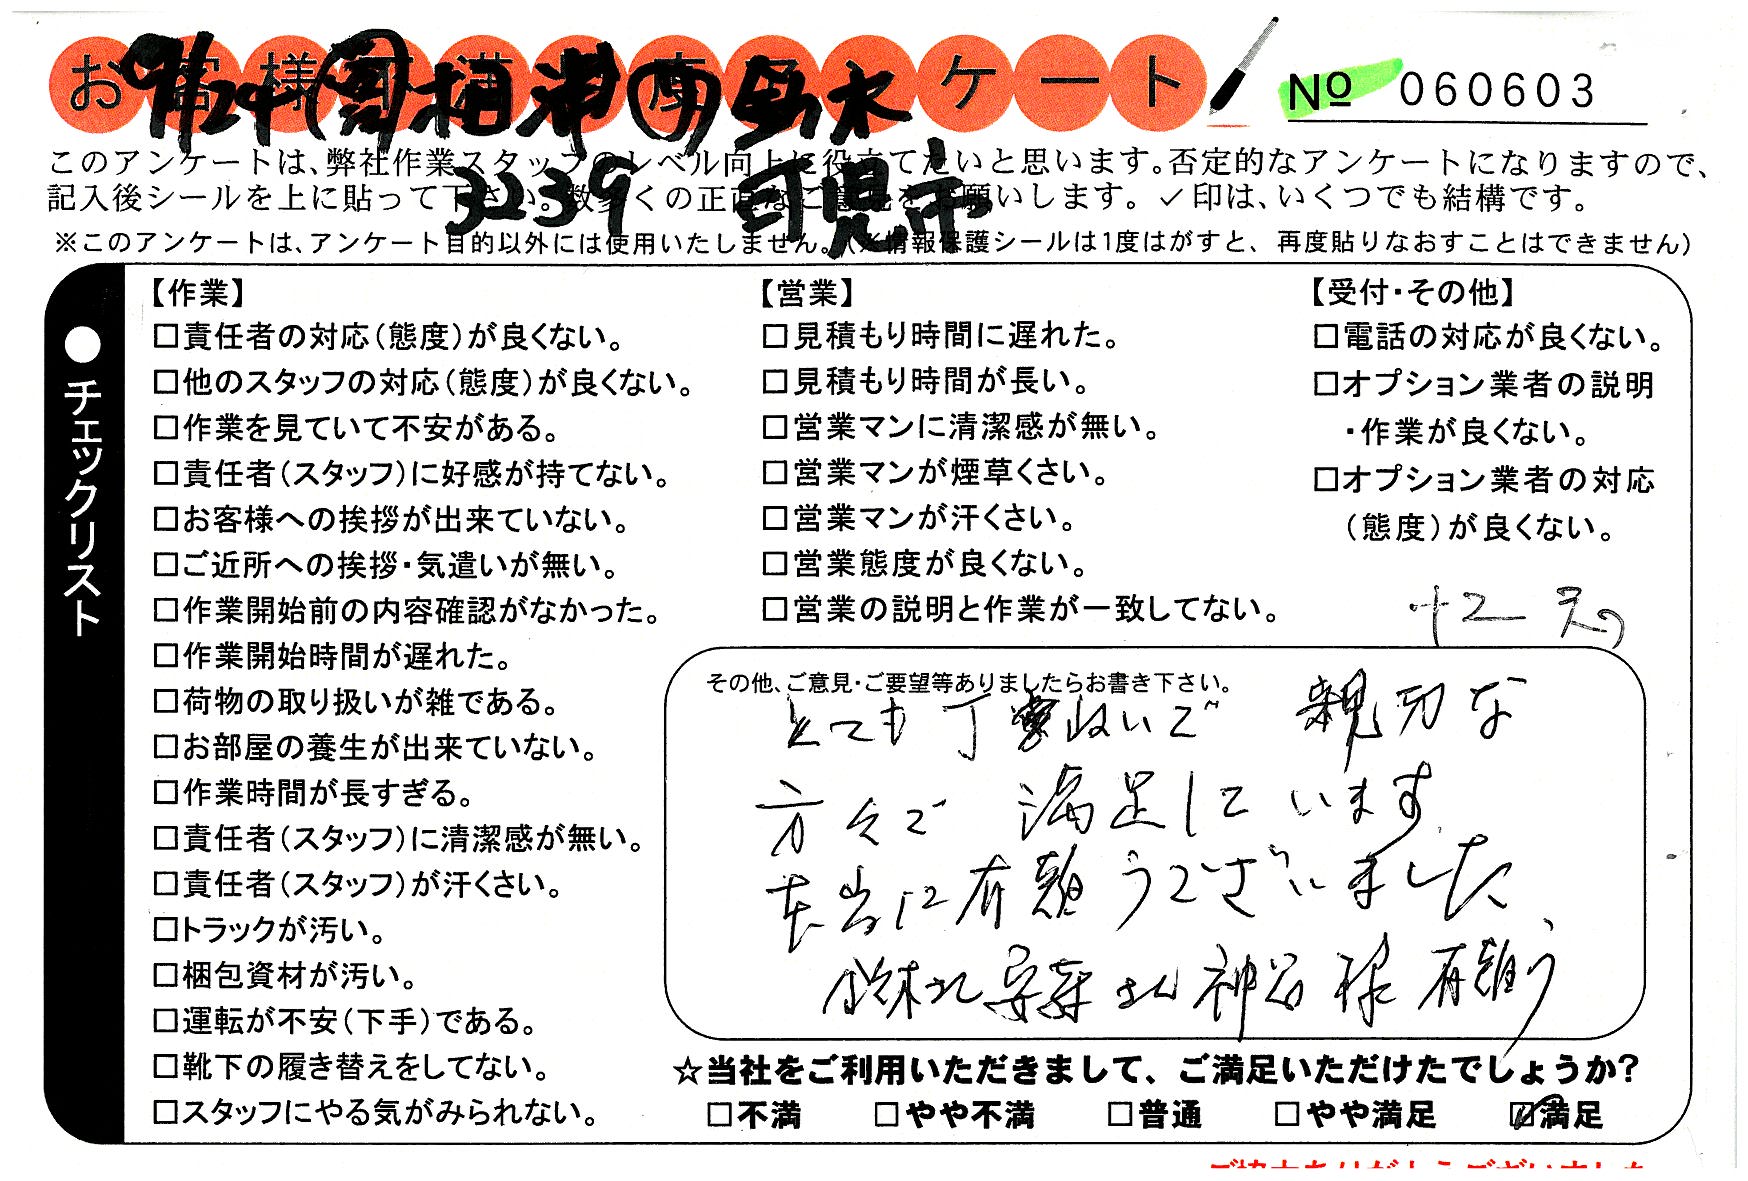 お客様不満度アンケート
9/29 周 相澤 西 垂水
No 060603
3239 可児市
このアンケートは、弊社作業スタッフのレベル向上に役立てたいと思います。否定的なアンケートになりますので、
記入後シールを上に貼って下さい。数多くの正直なご意見をお願いします。✓印は、いくつでも結構です。
※このアンケートは、アンケート目的以外には使用いたしません。(※情報保護シールは1度はがすと、再度貼りなおすことはできません)
●チェックリスト
【作業】
□責任者の対応(態度)が良くない。
□他のスタッフの対応(態度)が良くない。
□作業を見ていて不安がある。
□責任者(スタッフ)に好感が持てない。
□お客様への挨拶が出来ていない。
□ご近所への挨拶・気遣いが無い。
□作業開始前の内容確認がなかった。
□作業開始時間が遅れた。
□荷物の取り扱いが雑である。
□お部屋の養生が出来ていない。
□作業時間が長すぎる。
□責任者(スタッフ)に清潔感が無い。
□責任者(スタッフ)が汗くさい。
□トラックが汚い。
□梱包資材が汚い。
□運転が不安(下手)である。
□靴下の履き替えをしてない。
□スタッフにやる気がみられない。
【営業】
□見積もり時間に遅れた。
□見積もり時間が長い。
□営業マンに清潔感が無い。
□営業マンが煙草くさい。
□営業マンが汗くさい。
□営業態度が良くない。
□営業の説明と作業が一致してない。
【受付・その他】
□電話の対応が良くない。
□オプション業者の説明
・作業が良くない。
□オプション業者の対応
(態度)が良くない。
その他、ご意見・ご要望等ありましたらお書き下さい。
とても丁寧 扱いで 親切な
方々で 満足しています
本当に有難うございました、
鈴木さん 安藤さん 神谷様 有難う
☆当社をご利用いただきまして、ご満足いただけたでしょうか?
□不満 □やや不満 □普通 □やや満足 ☑満足
ご協力ありがとうございました